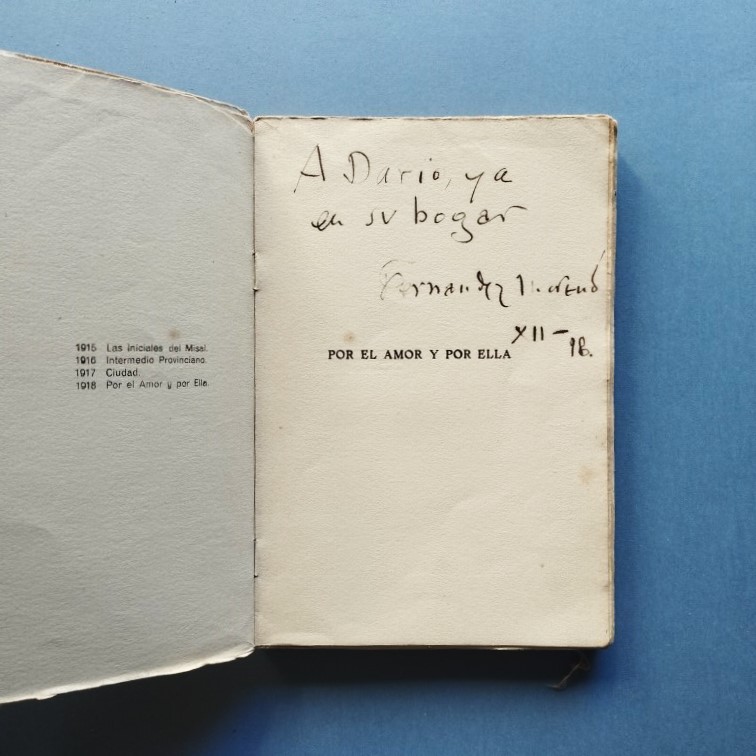 1915 Las Iniciales del Misal.
1916 Intermedio Provinciano.
1917 Ciudad.
1918 Por el Amor y por Ella.
A Dario, ya
en su hogar
Fernandez Moreno
XII - 18.
POR EL AMOR Y POR ELLA